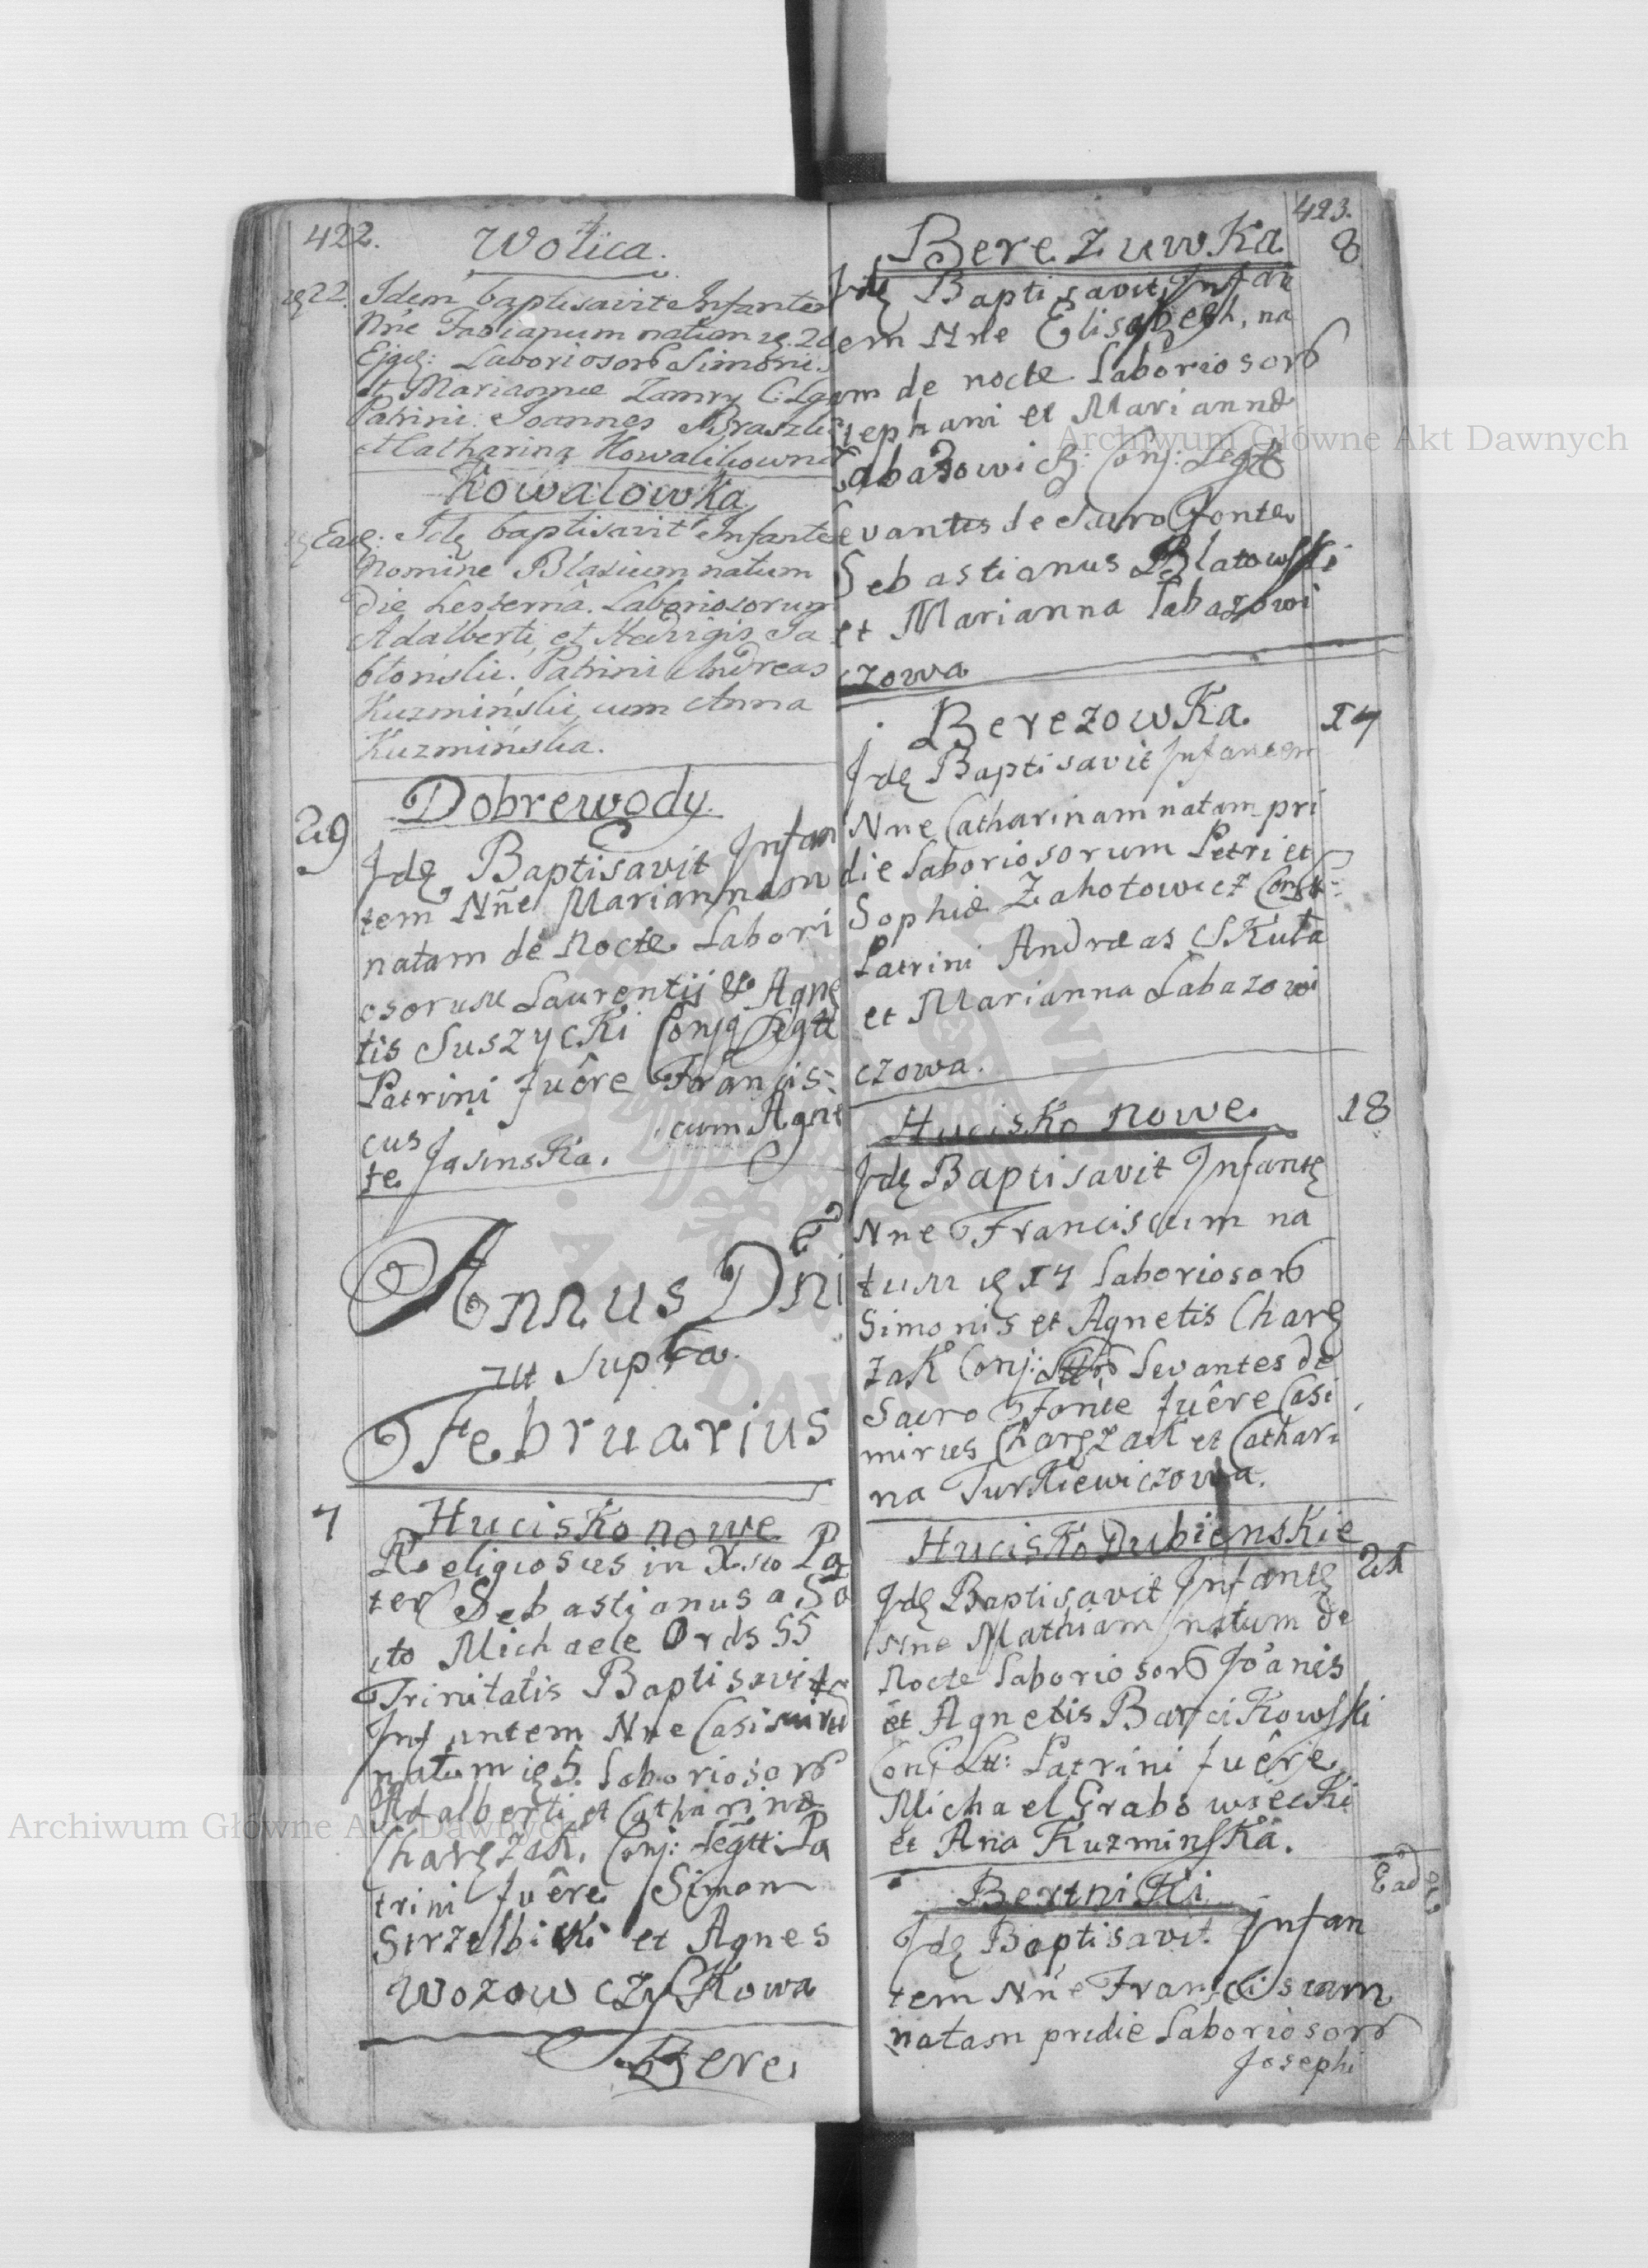 422.
Wolica.
22. Idem baptisavit Infantem
Nne Fabianum natum 20
Ejqd: Laboriosorb Simonis
et Mariannae Zamry C: Lg
Patrini: Joannes
et Catharina Kowalikowna
Kowalowka
Ead: Idq baptisavit Infante
Nomine Blasium natum
die hesterna. Laboriosorum
Adalberti, et Hedvigis Ja
błonski. Patrini Andreas
Kuzmiński, cum Anna
Kuzmińska.
29
Dobrewody.
Jdq Baptisavit Infan
tem Nñe Mariannam
natam de Nocte Labori
osorum Laurentij & Agne
tis Suszycki Conjg Legtt
Patrini fuêre Francis:
cus cum Agne
te Jasinska.
Annus Dñi
ut Supra.
Februarius
7
Hucisko nowe
Religiosus in Xsto Pa
ter Sebastianus a Sa
cto Michaele Ords SS
Trinitatis Baptisavit
Infantem Nne Casimiru
natum 5. Laboriosorb
Adalberti et Catharinæ
Charęzak. Conj: Legtt: Pa
trini fuêre Simon
Strzelbicki et Agnes
Wozowczykowa
Bere
423.
Berezuwka
8
Jdq Baptisavit Infan
tem Nne Elisabeth, na
tam de nocte Laboriosorb
Stephani et Mariannæ
Labazowicz: Conj: Legtt
Levantes de Sacro Fonte
Sebastianus Blatowski
et Marianna Labazowi
czowa
Berezowka.
17
Jdq Baptisavit Infantem
Nne Catharinam natam pri
die Laboriosorum Petri et
Sophiæ Zahotowicz
Patrini Andreas Skuta
et Marianna Labazowi
czowa.
Hucisko nowe.
18
Jdq Baptisavit Infantę
Nne Franciscum na
tum 17 Laboriosorb
Simonis et Agnetis Charę
zak Conj: Levantes de
Sacro Fonte fuêre Casi
mirus Charęzak et Cathari
na Turkiewiczowa.
Hucisko Dubienskie
21
Jdq Baptisavit Infantę
Nñe Mathiam natum de
Nocte Laboriosorb Joanis
et Agnetis Barcikowski
Conj Ltt: Patrini fuêre
Michael Grabowiecki
et Ana Kuzminska.
Ead
Bertniki
Jdq Baptisavit Infan
tem Nñe Franciscam
natam pridie Laboriosorb
Josephi
Archiwum Główne Akt Dawnych
Archiwum Główne Akt Dawnych